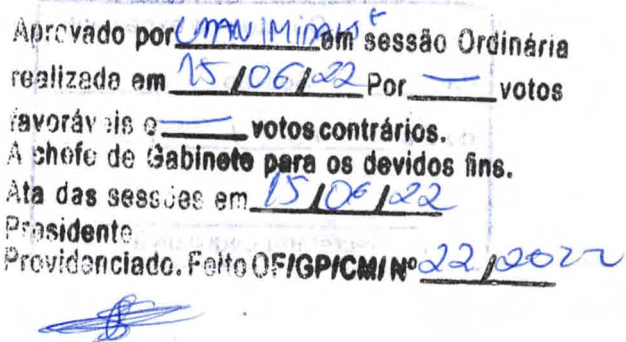 Aprovado por UNANIMIDADE em sessão Ordinária
realizada em 15/06/22 Por — votos
favoráveis e — votos contrários.
A chefe de Gabinete para os devidos fins.
Ata das sessões em 15/06/22
Presidente
Providenciado. Feito OF/GP/CM/ Nº 22/2022